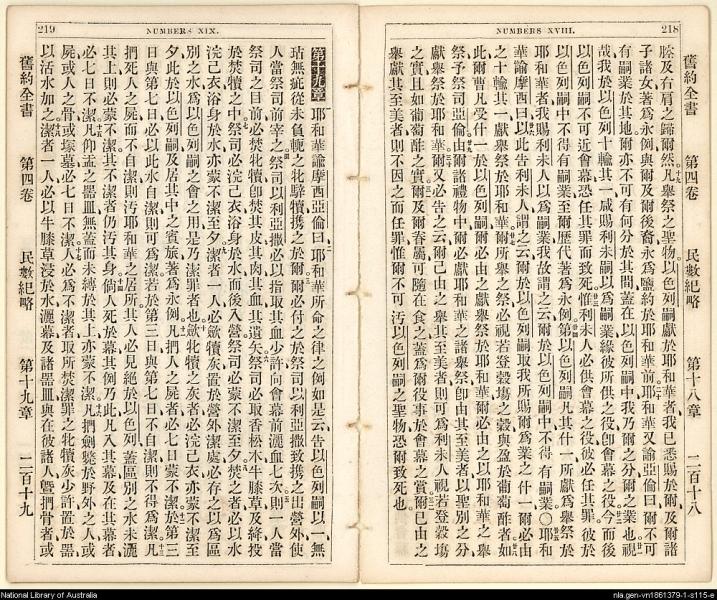 218
NUMBERS XVIII.
舊約全書 第四卷 民數紀略 第十八章 二百十八
及右肩之歸爾然凡舉祭之聖物以色列嗣獻於耶和華者我已悉賜於爾及爾諸
子諸女著爲永例與爾及爾後裔永爲鹽約於耶和華前耶和華又諭亞倫曰爾不可
有嗣業於其地爾亦不可有何分於其間蓋在以色列嗣中我乃爾之分爾之業也視
哉我於以色列十輸其一咸賜利未嗣以爲嗣業緣彼所供之役卽會幕之役今而後
以色列嗣不可近會幕恐任其罪而致死惟利未人必供會幕之役彼必任其罪彼於
以色列嗣中不得有嗣業至爾歷代著爲永例第以色列嗣凡其什一所獻爲舉祭於
耶和華者我賜利未人以爲嗣業我故謂之云爾於以色列嗣中不得有嗣業〇耶和
華諭摩西曰以此告利未人謂之云爾於以色列嗣取我所賜爾爲業之什一爾必由
之十輸其一獻爲舉祭於耶和華爾所舉之祭必視若登穀塲之穀與盈於葡萄醡者如
此爾曹凡受什一於以色列嗣爾必由之獻舉祭於耶和華爾必由之以耶和華之舉
祭予祭司亞倫由爾諸禮物中爾必獻耶和華之諸舉祭卽由其至美者以聖別之分
獻舉祭於耶和華爾又必告之云爾已由之舉其至美者則可爲利未人視若登穀塲
之實且如葡萄醡之實爾及爾眷屬可隨在食之蓋爲爾役事於會幕之賞爾已由之
舉獻其至美者則不因之而任罪惟爾不可污以色列嗣之聖物恐爾致死也
NUMBERS XIX.
219
第十九章 耶和華諭摩西亞倫曰耶和華所命之律之例如是云告以色列嗣以一無
玷無疵從未負軛之牝犢攜之於爾爾必付之於祭司以利亞撒致攜之出營外使
人當祭司前宰之祭司以利亞撒必以指取其血少許向會幕前灑血七次則一人當
祭司之目前必焚牝犢卽焚其皮其肉其血其遺矢祭司必取香松木牛膝草及絳投
於焚犢之中祭司必浣己衣浴身於水而後入營祭司必蒙不潔至夕焚之者必以水
浣己衣浴身於水亦蒙不潔至夕潔者一人必斂犢灰置於營外潔處必存之以爲區
別之水爲以色列嗣之會之用是乃潔罪者也斂牝犢之灰者必浣己衣亦蒙不潔至
夕此於以色列嗣及居其中之賓旅著爲永例凡捫人之屍者必七日蒙不潔於第三
日與第七日必以此水自潔則可爲潔若於第三日與第七日不自潔則不得爲潔凡
捫死人之屍而不自潔則污耶和華之居所其人必見絕於以色列蓋區別之水未灑
其上則必蒙不潔其不潔者仍污其身倘人死於幕其例乃此凡入其幕及在其幕者
必七日不潔凡仰盂之器皿無蓋而未縛於其上亦蒙不潔凡捫劍斃於野外之人或
屍或人之骨或塚墓必七日不潔人必爲不潔者取所焚潔罪之牝犢灰少許置於器
以活水加之潔者一人必以牛膝草浸於水灑幕及諸器皿與在彼諸人曁捫骨者或
舊約全書 第四卷 民數紀略 第十九章 二百十九
National Library of Australia
nla.gen-vn1861379-1-s115-e